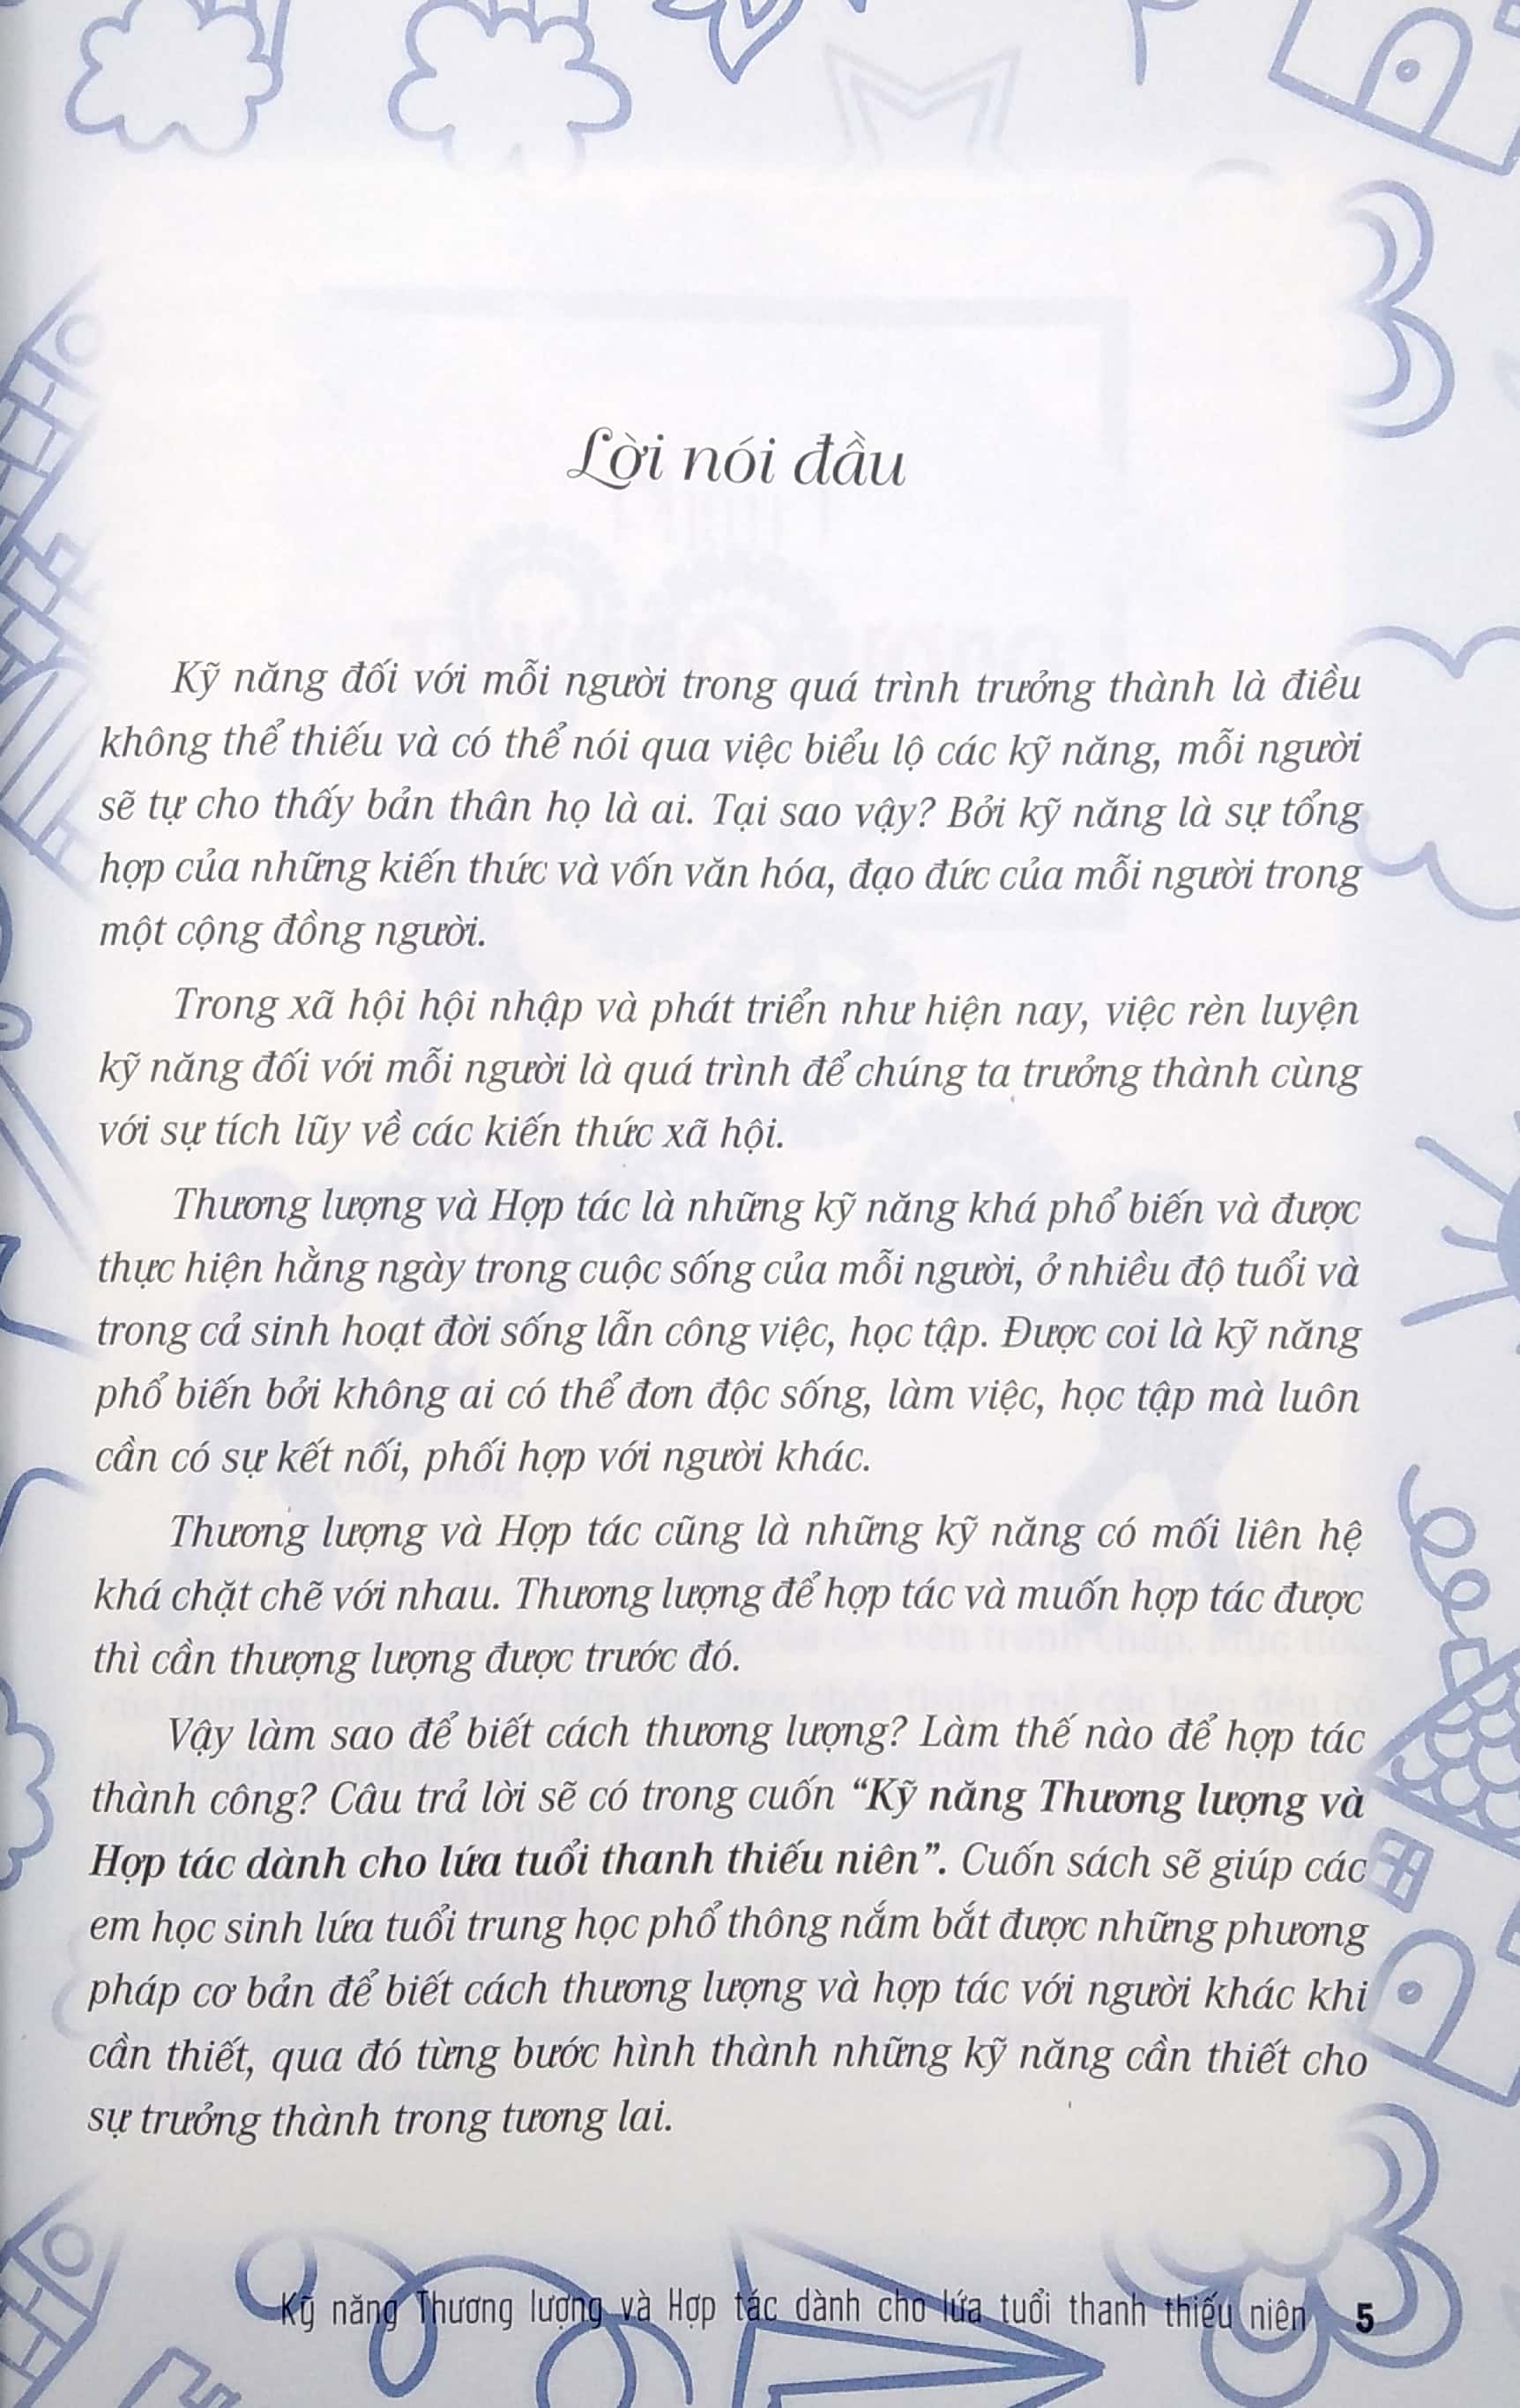 Lời nói đầu
Kỹ năng đối với mỗi người trong quá trình trưởng thành là điều
không thể thiếu và có thể nói qua việc biểu lộ các kỹ năng, mỗi người
sẽ tự cho thấy bản thân họ là ai. Tại sao vậy? Bởi kỹ năng là sự tổng
hợp của những kiến thức và vốn văn hóa, đạo đức của mỗi người trong
một cộng đồng người.
Trong xã hội hội nhập và phát triển như hiện nay, việc rèn luyện
kỹ năng đối với mỗi người là quá trình để chúng ta trưởng thành cùng
với sự tích lũy về các kiến thức xã hội.
Thương lượng và Hợp tác là những kỹ năng khá phổ biến và được
thực hiện hằng ngày trong cuộc sống của mỗi người, ở nhiều độ tuổi và
trong cả sinh hoạt đời sống lẫn công việc, học tập. Được coi là kỹ năng
phổ biến bởi không ai có thể đơn độc sống, làm việc, học tập mà luôn
cần có sự kết nối, phối hợp với người khác.
Thương lượng và Hợp tác cũng là những kỹ năng có mối liên hệ
khá chặt chẽ với nhau. Thương lượng để hợp tác và muốn hợp tác được
thì cần thượng lượng được trước đó.
Vậy làm sao để biết cách thương lượng? Làm thế nào để hợp tác
thành công? Câu trả lời sẽ có trong cuốn “Kỹ năng Thương lượng và
Hợp tác dành cho lứa tuổi thanh thiếu niên”. Cuốn sách sẽ giúp các
em học sinh lứa tuổi trung học phổ thông nắm bắt được những phương
pháp cơ bản để biết cách thương lượng và hợp tác với người khác khi
cần thiết, qua đó từng bước hình thành những kỹ năng cần thiết cho
sự trưởng thành trong tương lai.
Kỹ năng Thương lượng và Hợp tác dành cho lứa tuổi thanh thiếu niên 5